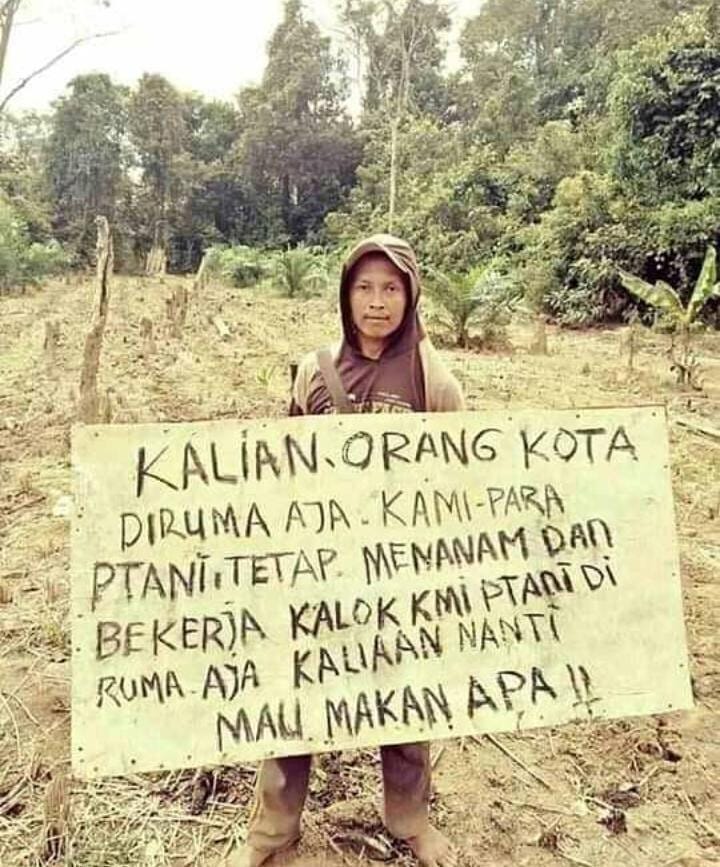 KALIAN. ORANG KOTA
DIRUMA AJA. KAMI-PARA
PTANI. TETAP. MENANAM DAN
BEKERJA KALOK KMI PTANI DI
RUMA. AJA KALIAAN NANTI
MAU. MAKAN APA !!